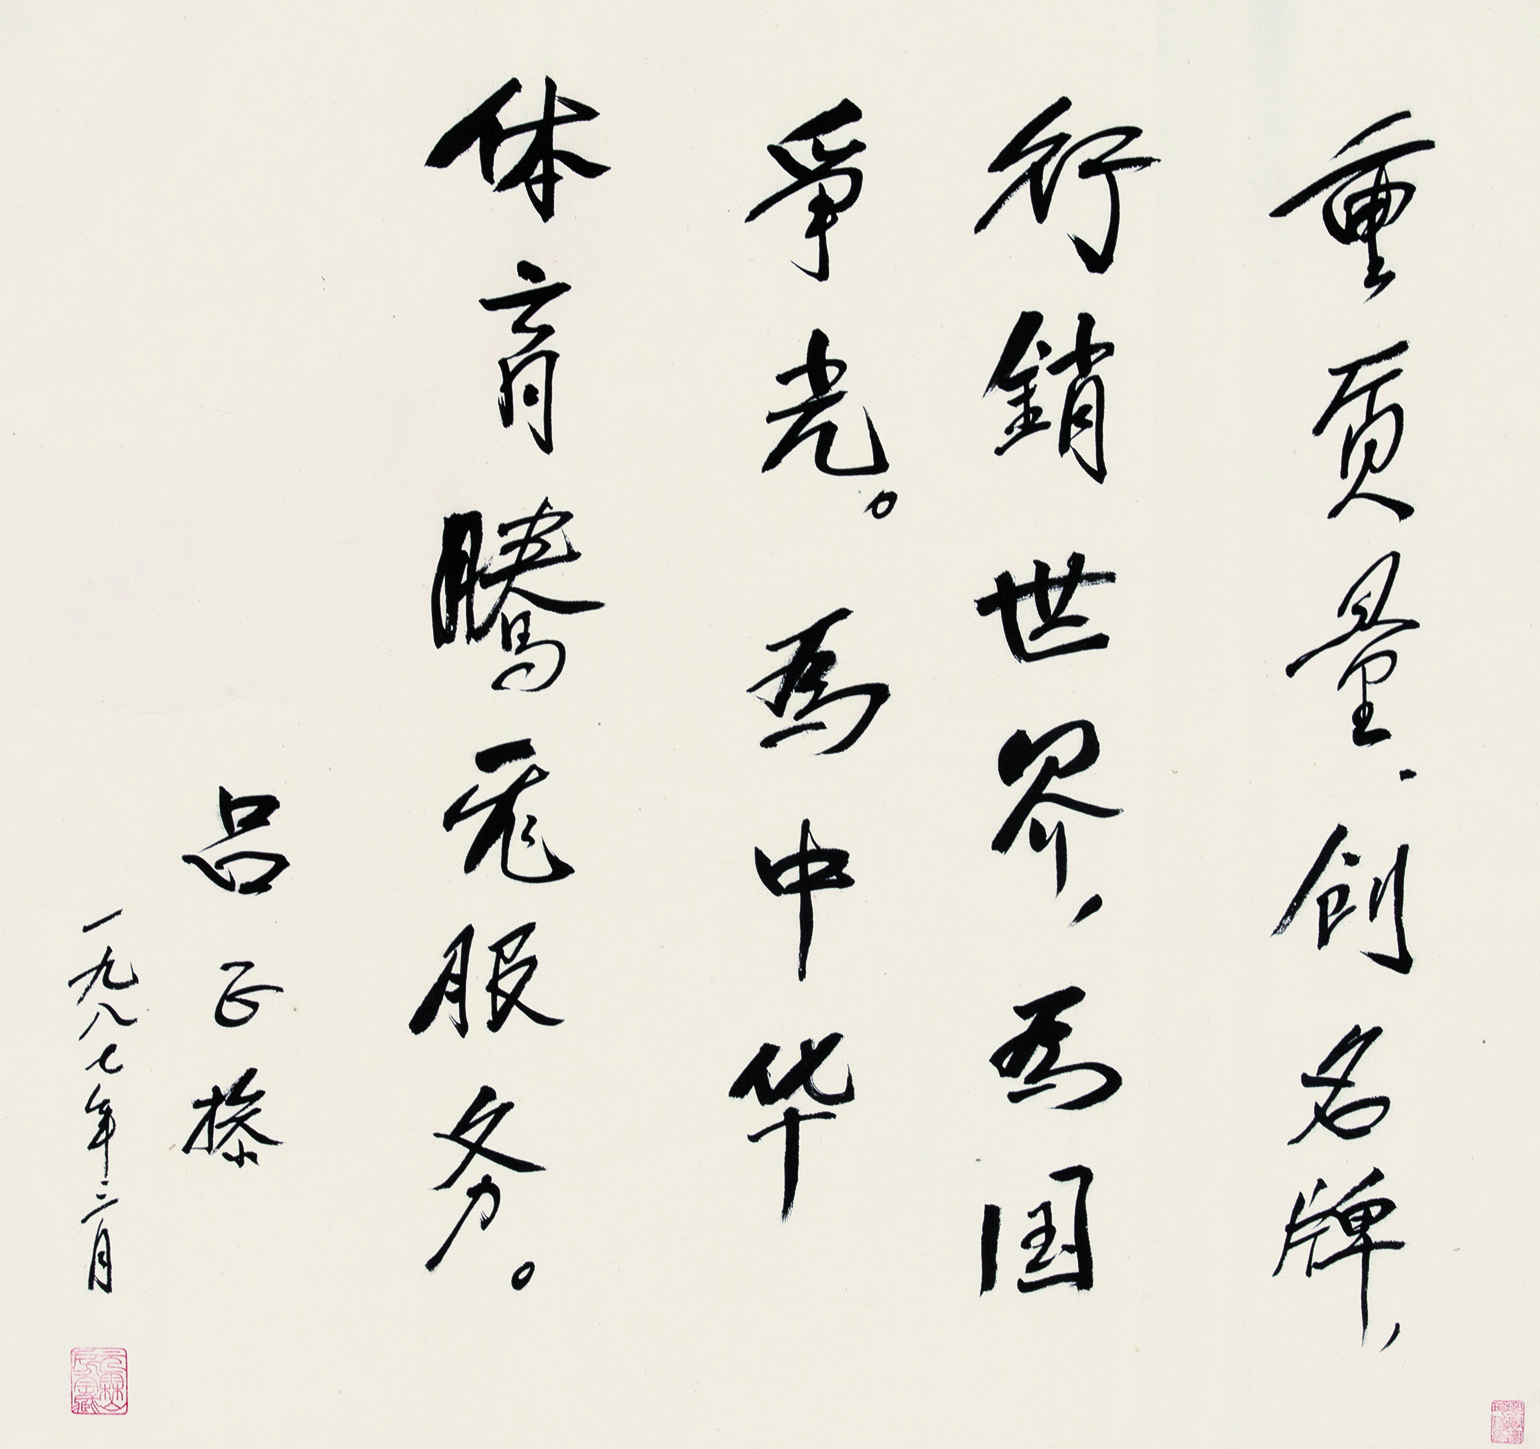 重质量、创名牌，
行銷世界，為国
争光。為中华
体育騰飛服务。
吕正操
一九八七年二月